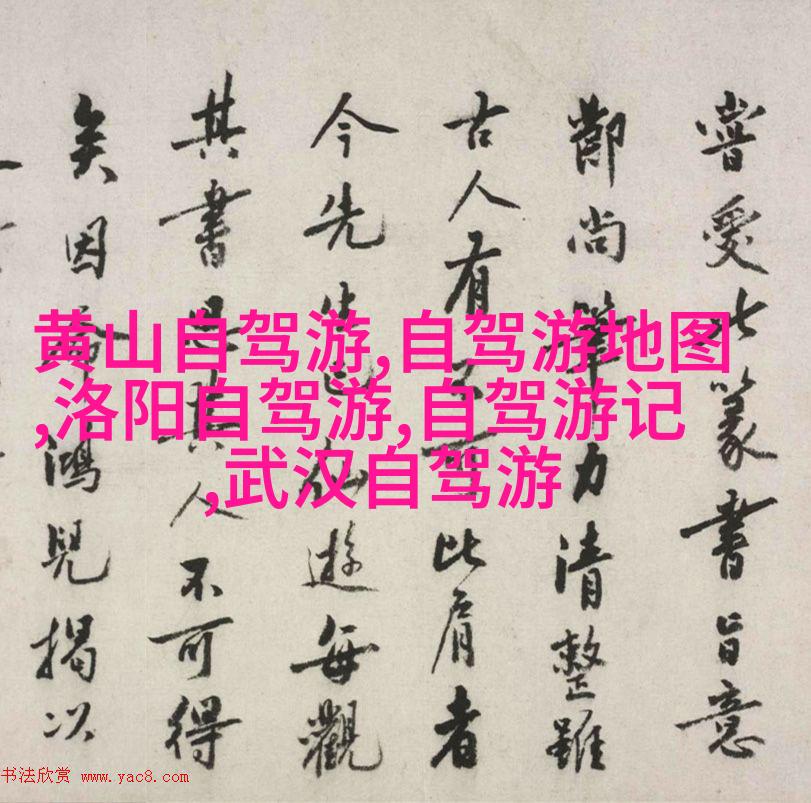 嘗愛此篆書旨意
尚筆力清整雖
古人有不可比肩者
今先生已仙遊每觀
其書思其人不可得
矣因命鴻兒揭以
黄山自驾游,自驾游地图
,洛阳自驾游,自驾游记
,武汉自驾游
书法欣赏 www.yac8.com